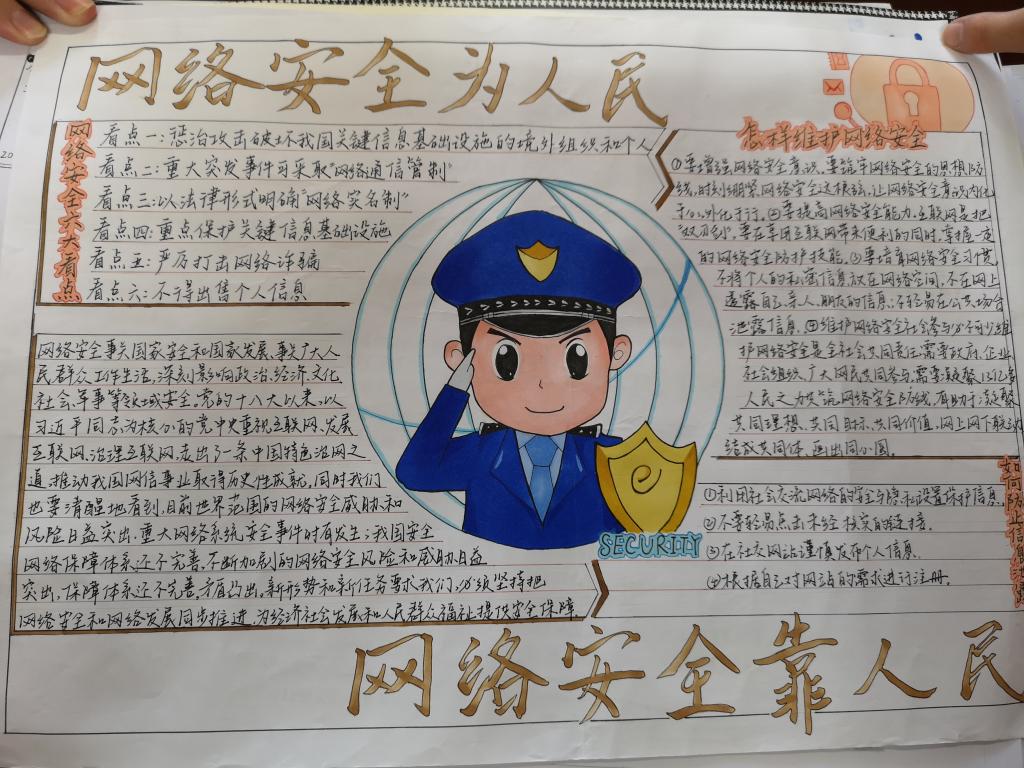 网络安全为人民
网络安全六大看点
看点一：惩治攻击破坏我国关键信息基础设施的境外组织和个人
看点二：重大突发事件可采取“网络通信管制”
看点三：以法律形式明确“网络实名制”
看点四：重点保护关键信息基础设施
看点五：严厉打击网络诈骗
看点六：不得出售个人信息
网络安全事关国家安全和国家发展，事关广大人
民群众工作生活，深刻影响政治、经济、文化、
社会、军事等领域安全。党的十八大以来，以
习近平同志为核心的党中央重视互联网、发展
互联网、治理互联网，走出了一条中国特色治网之
道，推动我国网信事业取得历史性成就，同时我们
也要清醒地看到，目前世界范围的网络安全威胁和
风险日益突出，重大网络系统安全事件时有发生；我国安全
网络保障体系还不完善，不断加剧的网络安全风险和威胁日益
突出，保障体系还不完善，矛盾凸出。新形势和新任务要求我们，必须坚持把
网络安全和网络发展同步推进，为经济社会发展和人民群众福祉提供安全保障
怎样维护网络安全
①要增强网络安全意识。要筑牢网络安全的思想防
线，时刻绷紧网络安全这根弦，让网络安全意识内化
于心，外化于行。②要提高网络安全能力。互联网是把
“双刃剑”，要在享用互联网带来便利的同时，掌握一定
的网络安全防护技能。③要培育网络安全习惯
不将个人的私密信息放在网络空间，不在网上
透露自己、亲人、朋友的信息；不轻易在公共场合
泄露信息。④维护网络安全社会参与必不可少，维
护网络安全是全社会共同责任，需要政府、企业、
社会组织、广大网民共同参与，需要凝聚13亿多
人民之力，共筑网络安全防线，有助于凝聚
共同理想、共同目标、共同价值，网上网下联动
结成共同体，画出同心圆。
如何防止信息
①利用社会交流网络的安全与隐私设置保护信息
②不要轻易点击未经核实的链接。
③在社交网站谨慎发布个人信息。
④根据自己对网站的需求进行注册。
SECURITY
网络安全靠人民